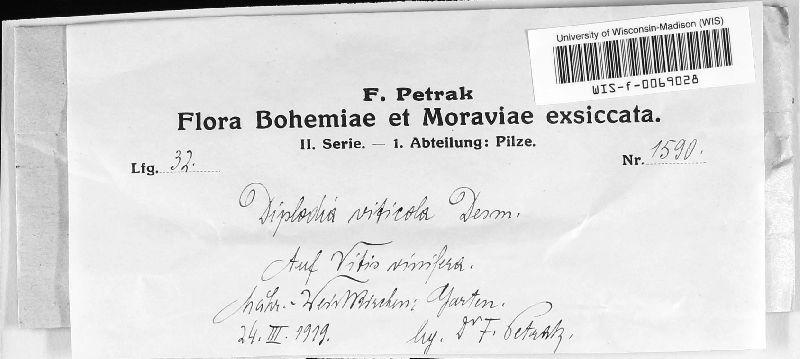 University of Wisconsin-Madison (WIS)
WIS-f-0069028
F. Petrak
Flora Bohemiae et Moraviae exsiccata.
II. Serie. — 1. Abteilung: Pilze.
Lfg. 32.
Nr. 1590.
Diplodia viticola Desm.
Auf Vitis vinifera.
Mähr.-Weisskirchen: Garten.
24. III. 1919. lg. Dr F. Petrak.